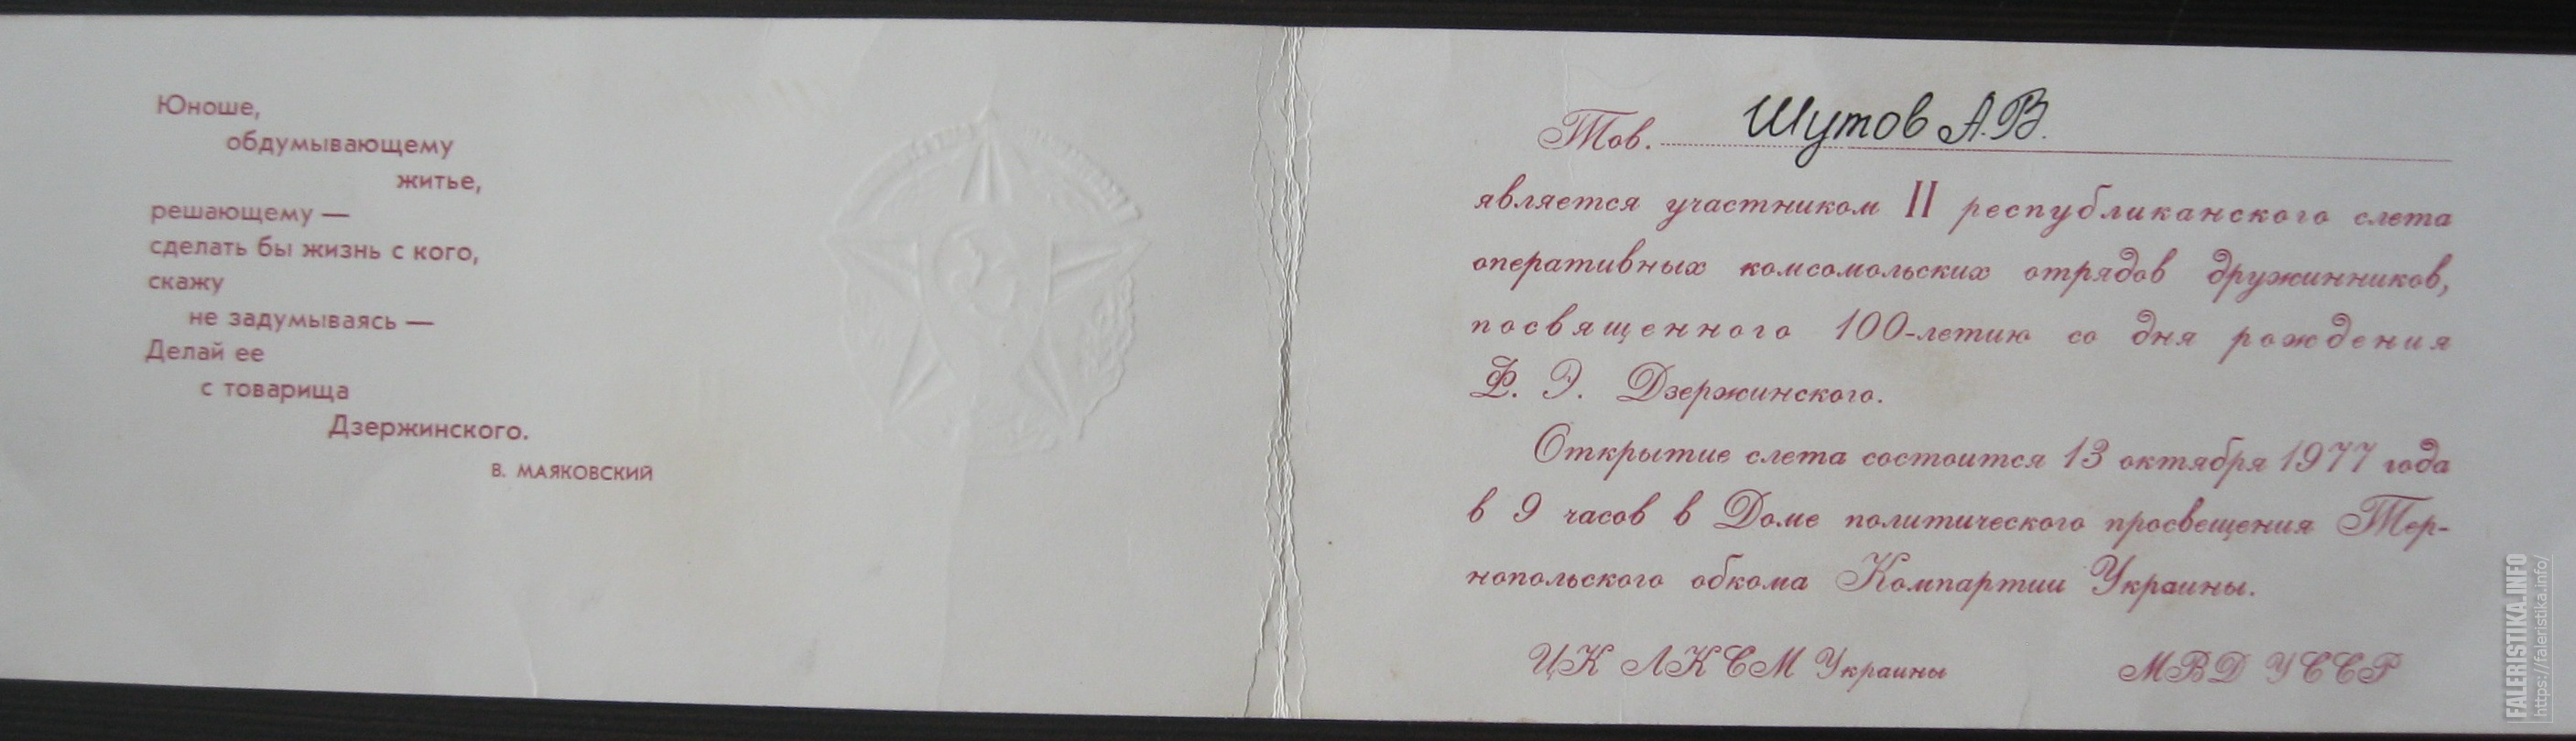 Юноше,
обдумывающему
житье,
решающему —
сделать бы жизнь с кого,
скажу
не задумываясь —
Делай ее
с товарища
Дзержинского.
В. МАЯКОВСКИЙ
Тов. Шутов А.В.
является участником II республиканского слета
оперативных комсомольских отрядов дружинников,
посвященного 100-летию со дня рождения
Ф. Э. Дзержинского.
Открытие слета состоится 13 октября 1977 года
в 9 часов в Доме политического просвещения Тер-
нопольского обкома Компартии Украины.
ЦК ЛКСМ Украины МВД УССР
FALERISTIKA.INFO
https://faleristika.info/